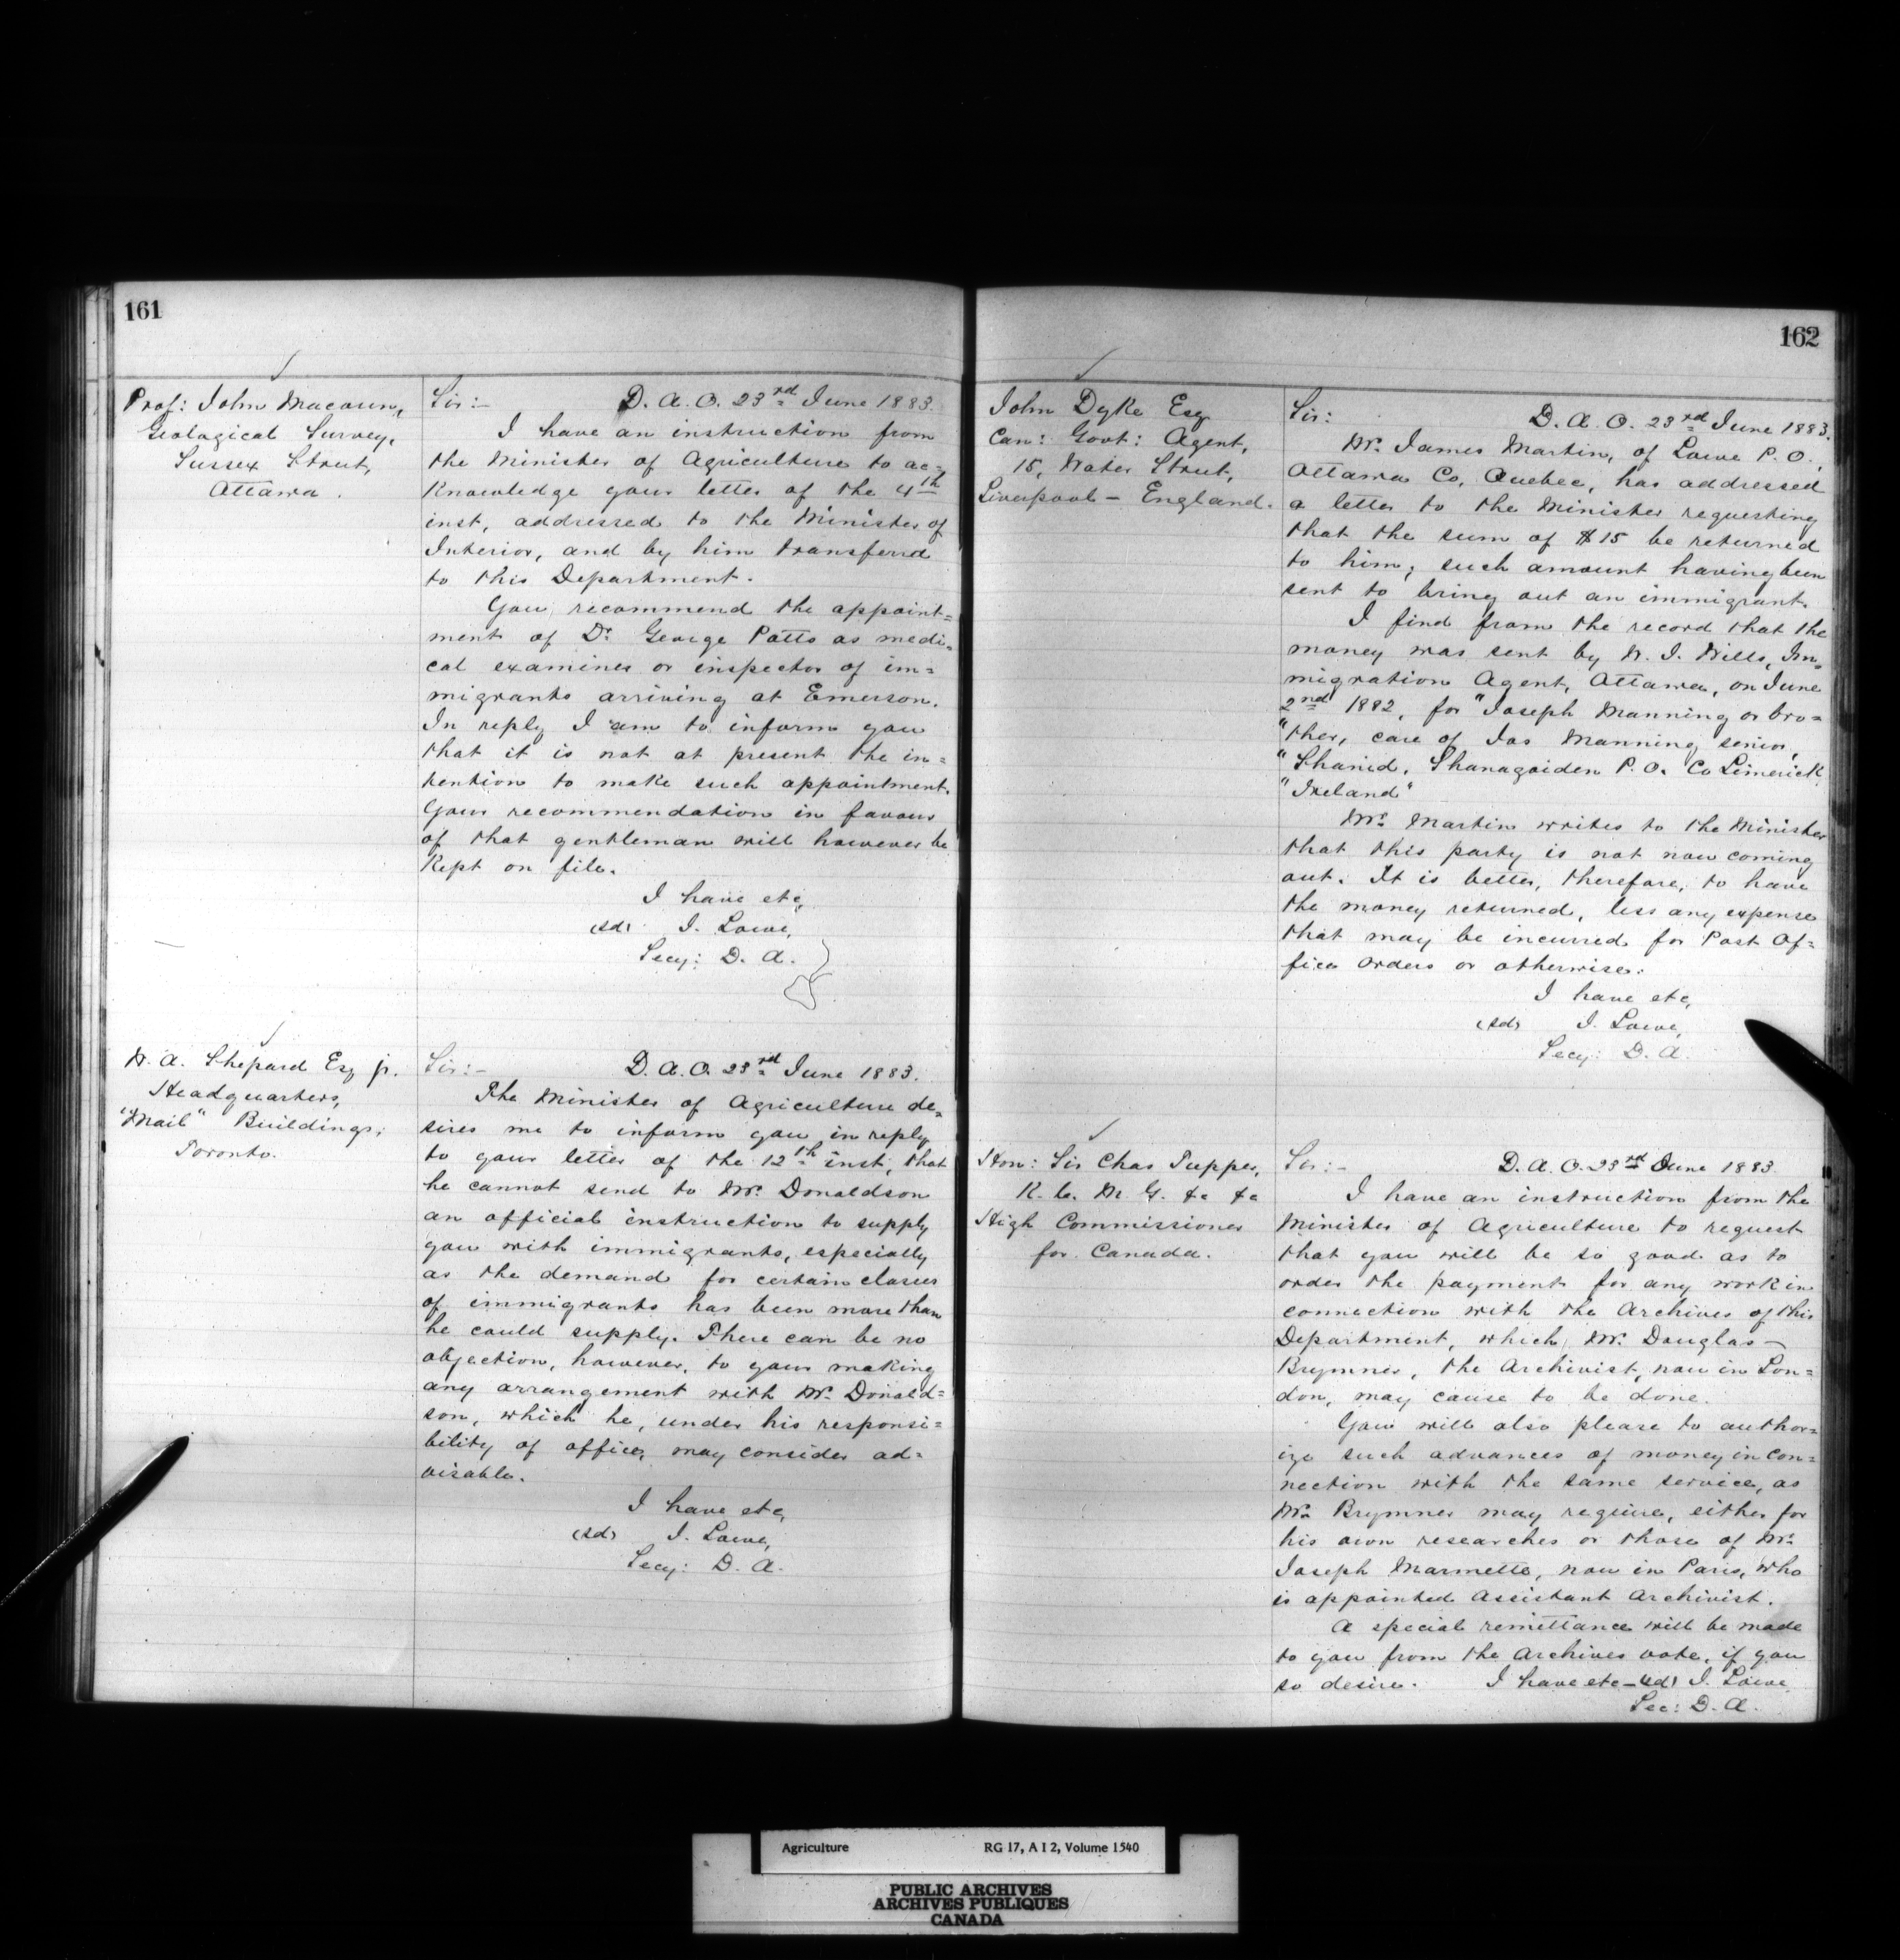 161
Prof: John Macoun,
Geological Survey,
Sussex Street,
Ottawa.
Sir:- D. A. O. 23rd June 1883.
I have an instruction from
the Minister of Agriculture to ac=
knowledge your letter of the 4th
inst, addressed to the Minister of
Interior, and by him transferred
to this Department.
You recommend the appoint=
ment of Dr. George Potts as medi=
cal examiner or inspector of im=
migrants arriving at Emerson.
In reply I am to inform you
that it is not at present the in=
tention to make such appointment.
Your recommendation in favour
of that gentleman will however be
kept on file.
I have etc,
(sd) J. Lowe,
Secy: D. A.
W. A. Shepard Esq jr.
Headquarters,
"Mail" Buildings,
Toronto.
Sir:- D. A. O. 23rd June 1883.
The Minister of Agriculture de=
sires me to inform you in reply
to your letter of the 12th inst, that
he cannot send to Mr. Donaldson
an official instruction to supply
you with immigrants, especially
as the demand for certain classes
of immigrants has been more than
he could supply. There can be no
objection, however, to your making
any arrangement with Mr. Donald=
son, which he, under his responsi=
bility of office, may consider ad=
visable.
I have etc,
(sd) J. Lowe,
Secy: D. A.
162
John Dyke Esq
Can: Govt: Agent,
15, Water Street,
Liverpool - England.
Sir: D. A. O. 23rd June 1883.
Mr. James Martin, of Lowe P. O.,
Ottawa Co, Quebec, has addressed
a letter to the Minister requesting
that the sum of $15 be returned
to him; such amount having been
sent to bring out an immigrant.
I find from the record that the
money was sent by W. J. Wills, Im=
migration Agent, Ottawa, on June
2nd 1882, for "Joseph Manning or bro=
"ther, care of Jas Manning senior,
"Shanid, Shanagolden P. O. Co Limerick
"Ireland"
Mr. Martin writes to the Minister
that this party is not now coming
out. It is better, therefore, to have
the money returned, less any expense
that may be incurred for Post Of=
fice orders or otherwise.
I have etc,
(sd) J. Lowe,
Secy: D. A.
Hon: Sir Chas Tupper,
K. C. M. G. &c &c
High Commissioner
for Canada.
Sir:- D. A. O. 23rd June 1883.
I have an instruction from the
Minister of Agriculture to request
that you will be so good as to
order the payment for any work in
connection with the Archives of this
Department, which Mr. Douglas
Brymner, the Archivist, now in Lon=
don, may cause to be done.
You will also please to author=
ize such advances of money in con=
nection with the same service, as
Mr. Brymner may require, either for
his own researches or those of Mr.
Joseph Marmette, now in Paris, who
is appointed Assistant Archivist.
A special remittance will be made
to you from the Archives vote, if you
so desire. I have etc - (sd) J. Lowe
Sec: D. A.
Agriculture RG 17, A I 2, Volume 1540
PUBLIC ARCHIVES
ARCHIVES PUBLIQUES
CANADA